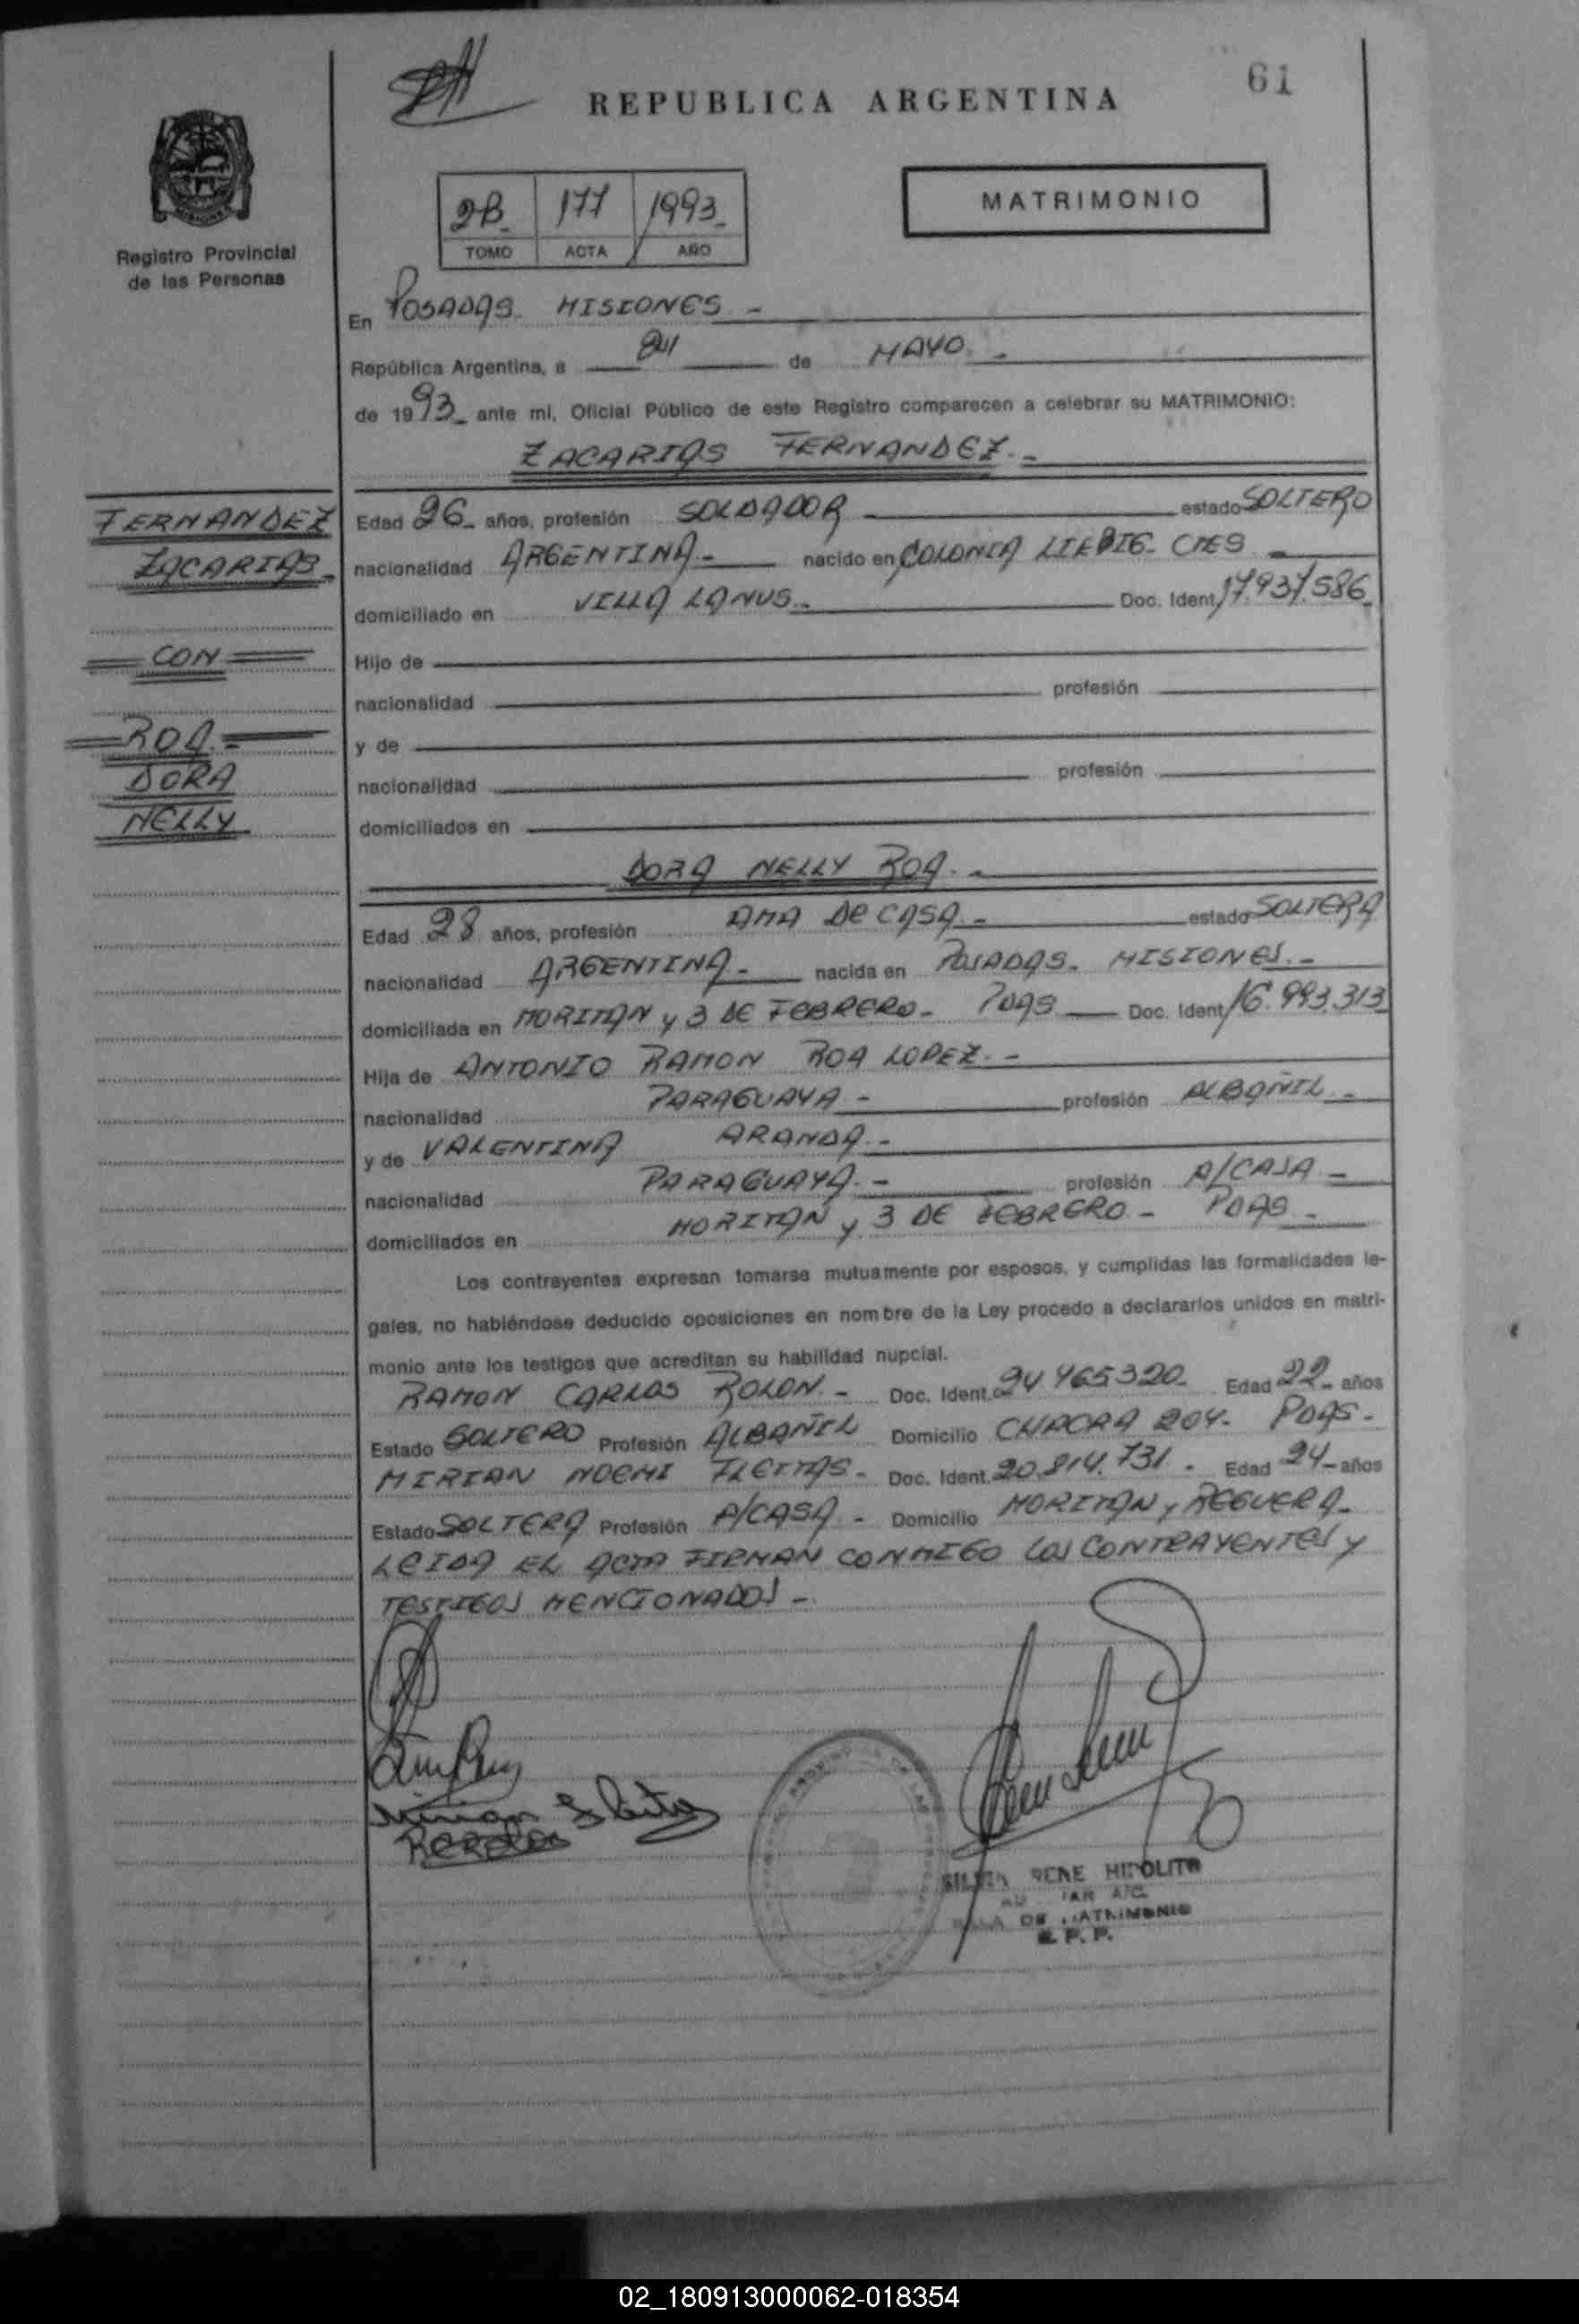 61
REPUBLICA ARGENTINA
MATRIMONIO
2B 177 1993
TOMO ACTA AÑO
Registro Provincial
de las Personas
En POSADAS - MISIONES -
República Argentina, a de MAYO -
de 1993 ante mí, Oficial Público de este Registro comparecen a celebrar su MATRIMONIO:
ZACARIAS FERNANDEZ -
FERNANDEZ
ZACARIAS
CON
ROA
DORA
NELLY
Edad 26 años, profesión SOLDADOR estado SOLTERO
nacionalidad ARGENTINA - nacido en COLONIA LIEBIG - CTES -
domiciliado en VILLA LANUS - Doc. Ident. 17.937.586
Hijo de
nacionalidad profesión
y de
nacionalidad profesión
domiciliados en
DORA NELLY ROA -
Edad 28 años, profesión AMA DE CASA - estado SOLTERA
nacionalidad ARGENTINA - nacida en POSADAS - MISIONES -
domiciliada en MORITAN y 3 DE FEBRERO - PDAS Doc. Ident. 16.993.313
Hija de ANTONIO RAMON ROA LOPEZ -
nacionalidad PARAGUAYA - profesión ALBAÑIL -
y de VALENTINA ARANDA -
nacionalidad PARAGUAYA - profesión A/CASA -
domiciliados en MORITAN y 3 DE FEBRERO - PDAS -
Los contrayentes expresan tomarse mutuamente por esposos, y cumplidas las formalidades le-
gales, no habiéndose deducido oposiciones en nombre de la Ley procedo a declararlos unidos en matri-
monio ante los testigos que acreditan su habilidad nupcial.
RAMON CARLOS ROLON - Doc. Ident. 24 465320 - Edad 22 - años
Estado SOLTERO Profesión ALBAÑIL Domicilio CHACRA 204 - PDAS -
MIRIAN NOEMI FLEITAS - Doc. Ident. 20.814.731 - Edad 24 - años
Estado SOLTERA Profesión A/CASA - Domicilio MORITAN y REGUERA -
LEIDA EL ACTA FIRMAN CONMIGO LOS CONTRAYENTES y
TESTIGOS MENCIONADOS -
RENE HIPOLITO
DE MATRIMONIO
R. P. P.
02_180913000062-018354